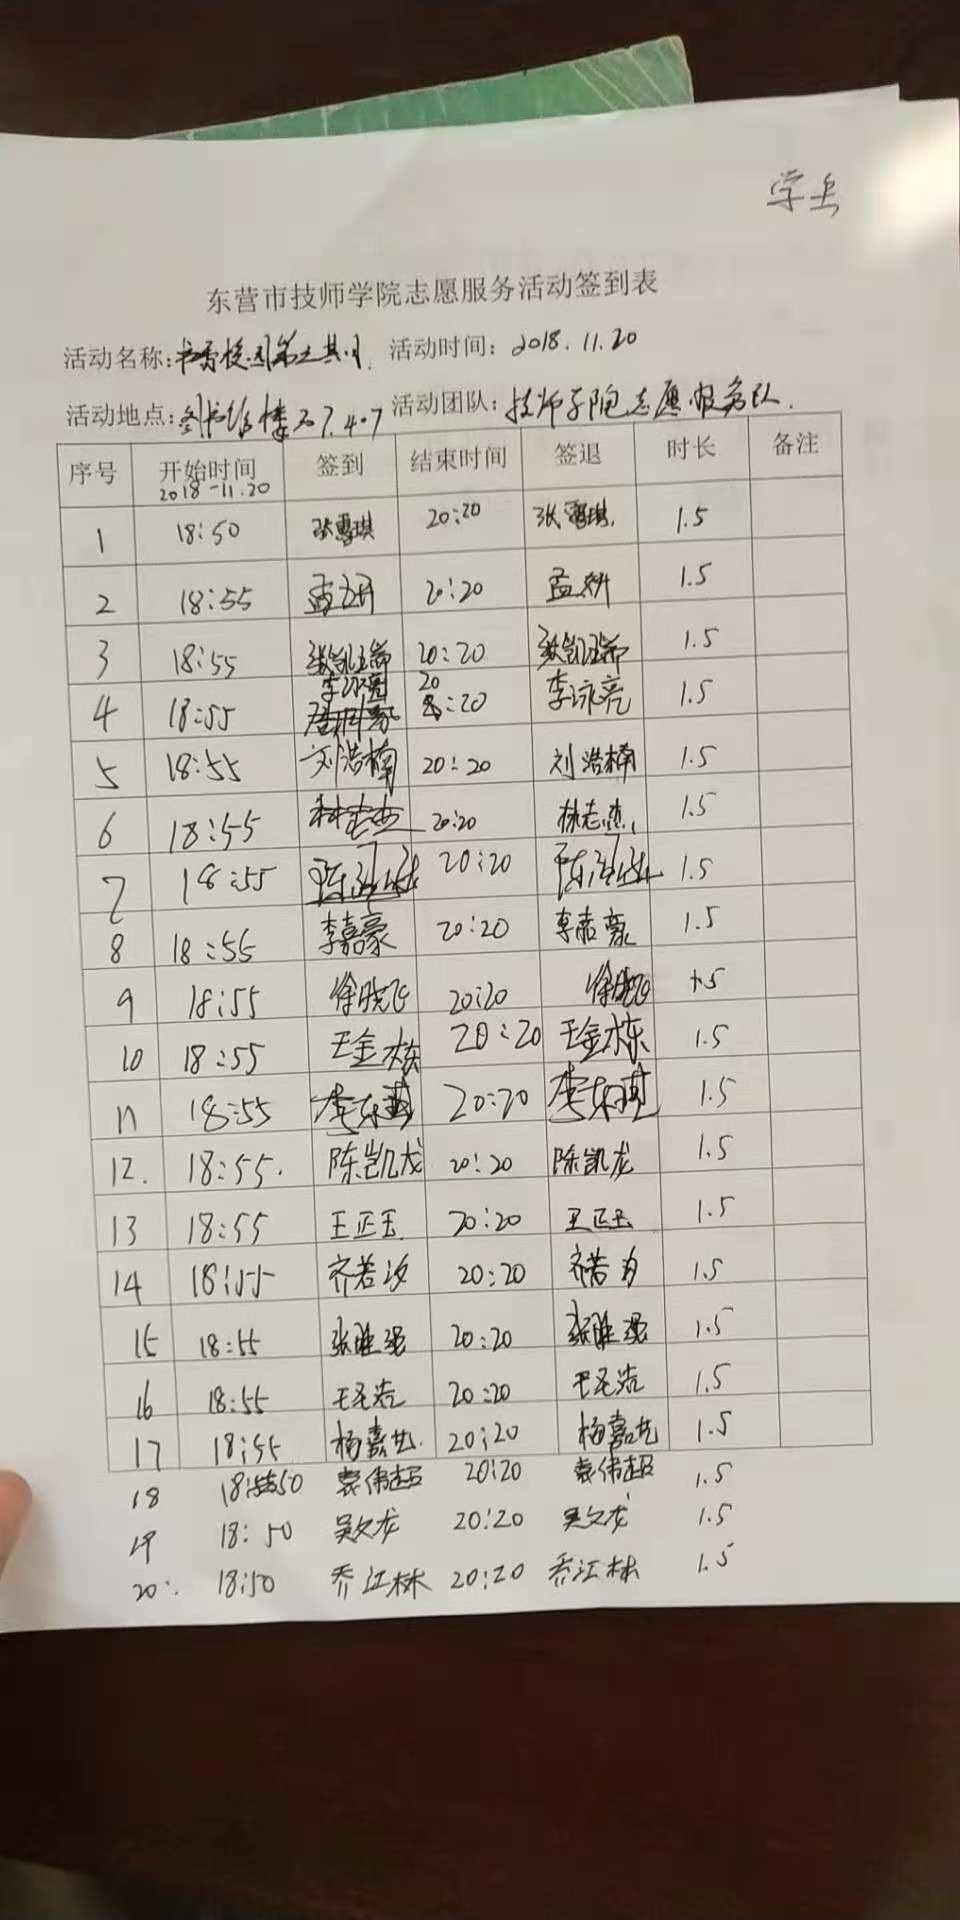 东营市技师学院志愿服务活动签到表
活动名称: 书香校园第七期 活动时间: 2018.11.20
活动地点: 图书 407 活动团队: 技师学院志愿服务队.
序号 开始时间 签到 结束时间 签退 时长 备注
2018-11.20
1 18:50 张雪琪 20:20 张雪琪. 1.5
2 18:55 孟妍 20:20 孟妍 1.5
3 18:55 张凯瑞 20:20 张凯瑞 1.5
4 18:55 李泳亮 20:20 李泳亮 1.5
5 18:55 刘浩楠 20:20 刘浩楠 1.5
6 18:55 林志杰 20:20 林志杰 1.5
7 18:55 20:20 1.5
8 18:55 李嘉豪 20:20 李嘉豪 1.5
9 18:55 徐晓飞 20:20 徐晓飞 1.5
10 18:55 王金栋 20:20 王金栋 1.5
11 18:55 20:20 1.5
12. 18:55. 陈凯龙 20:20 陈凯龙 1.5
13 18:55 王正玉 20:20 王正玉 1.5
14 18:55 齐若汐 20:20 齐若 1.5
15 18:55 张胜强 20:20 张胜强 1.5
16 18:55 20:20 1.5
17 18:55 杨嘉艺. 20:20 杨嘉艺 1.5
18 18:50 袁伟超 20:20 袁伟超 1.5
19 18:50 吴文龙 20:20 吴文龙 1.5
20. 18:50 乔江林 20:20 乔江林 1.5